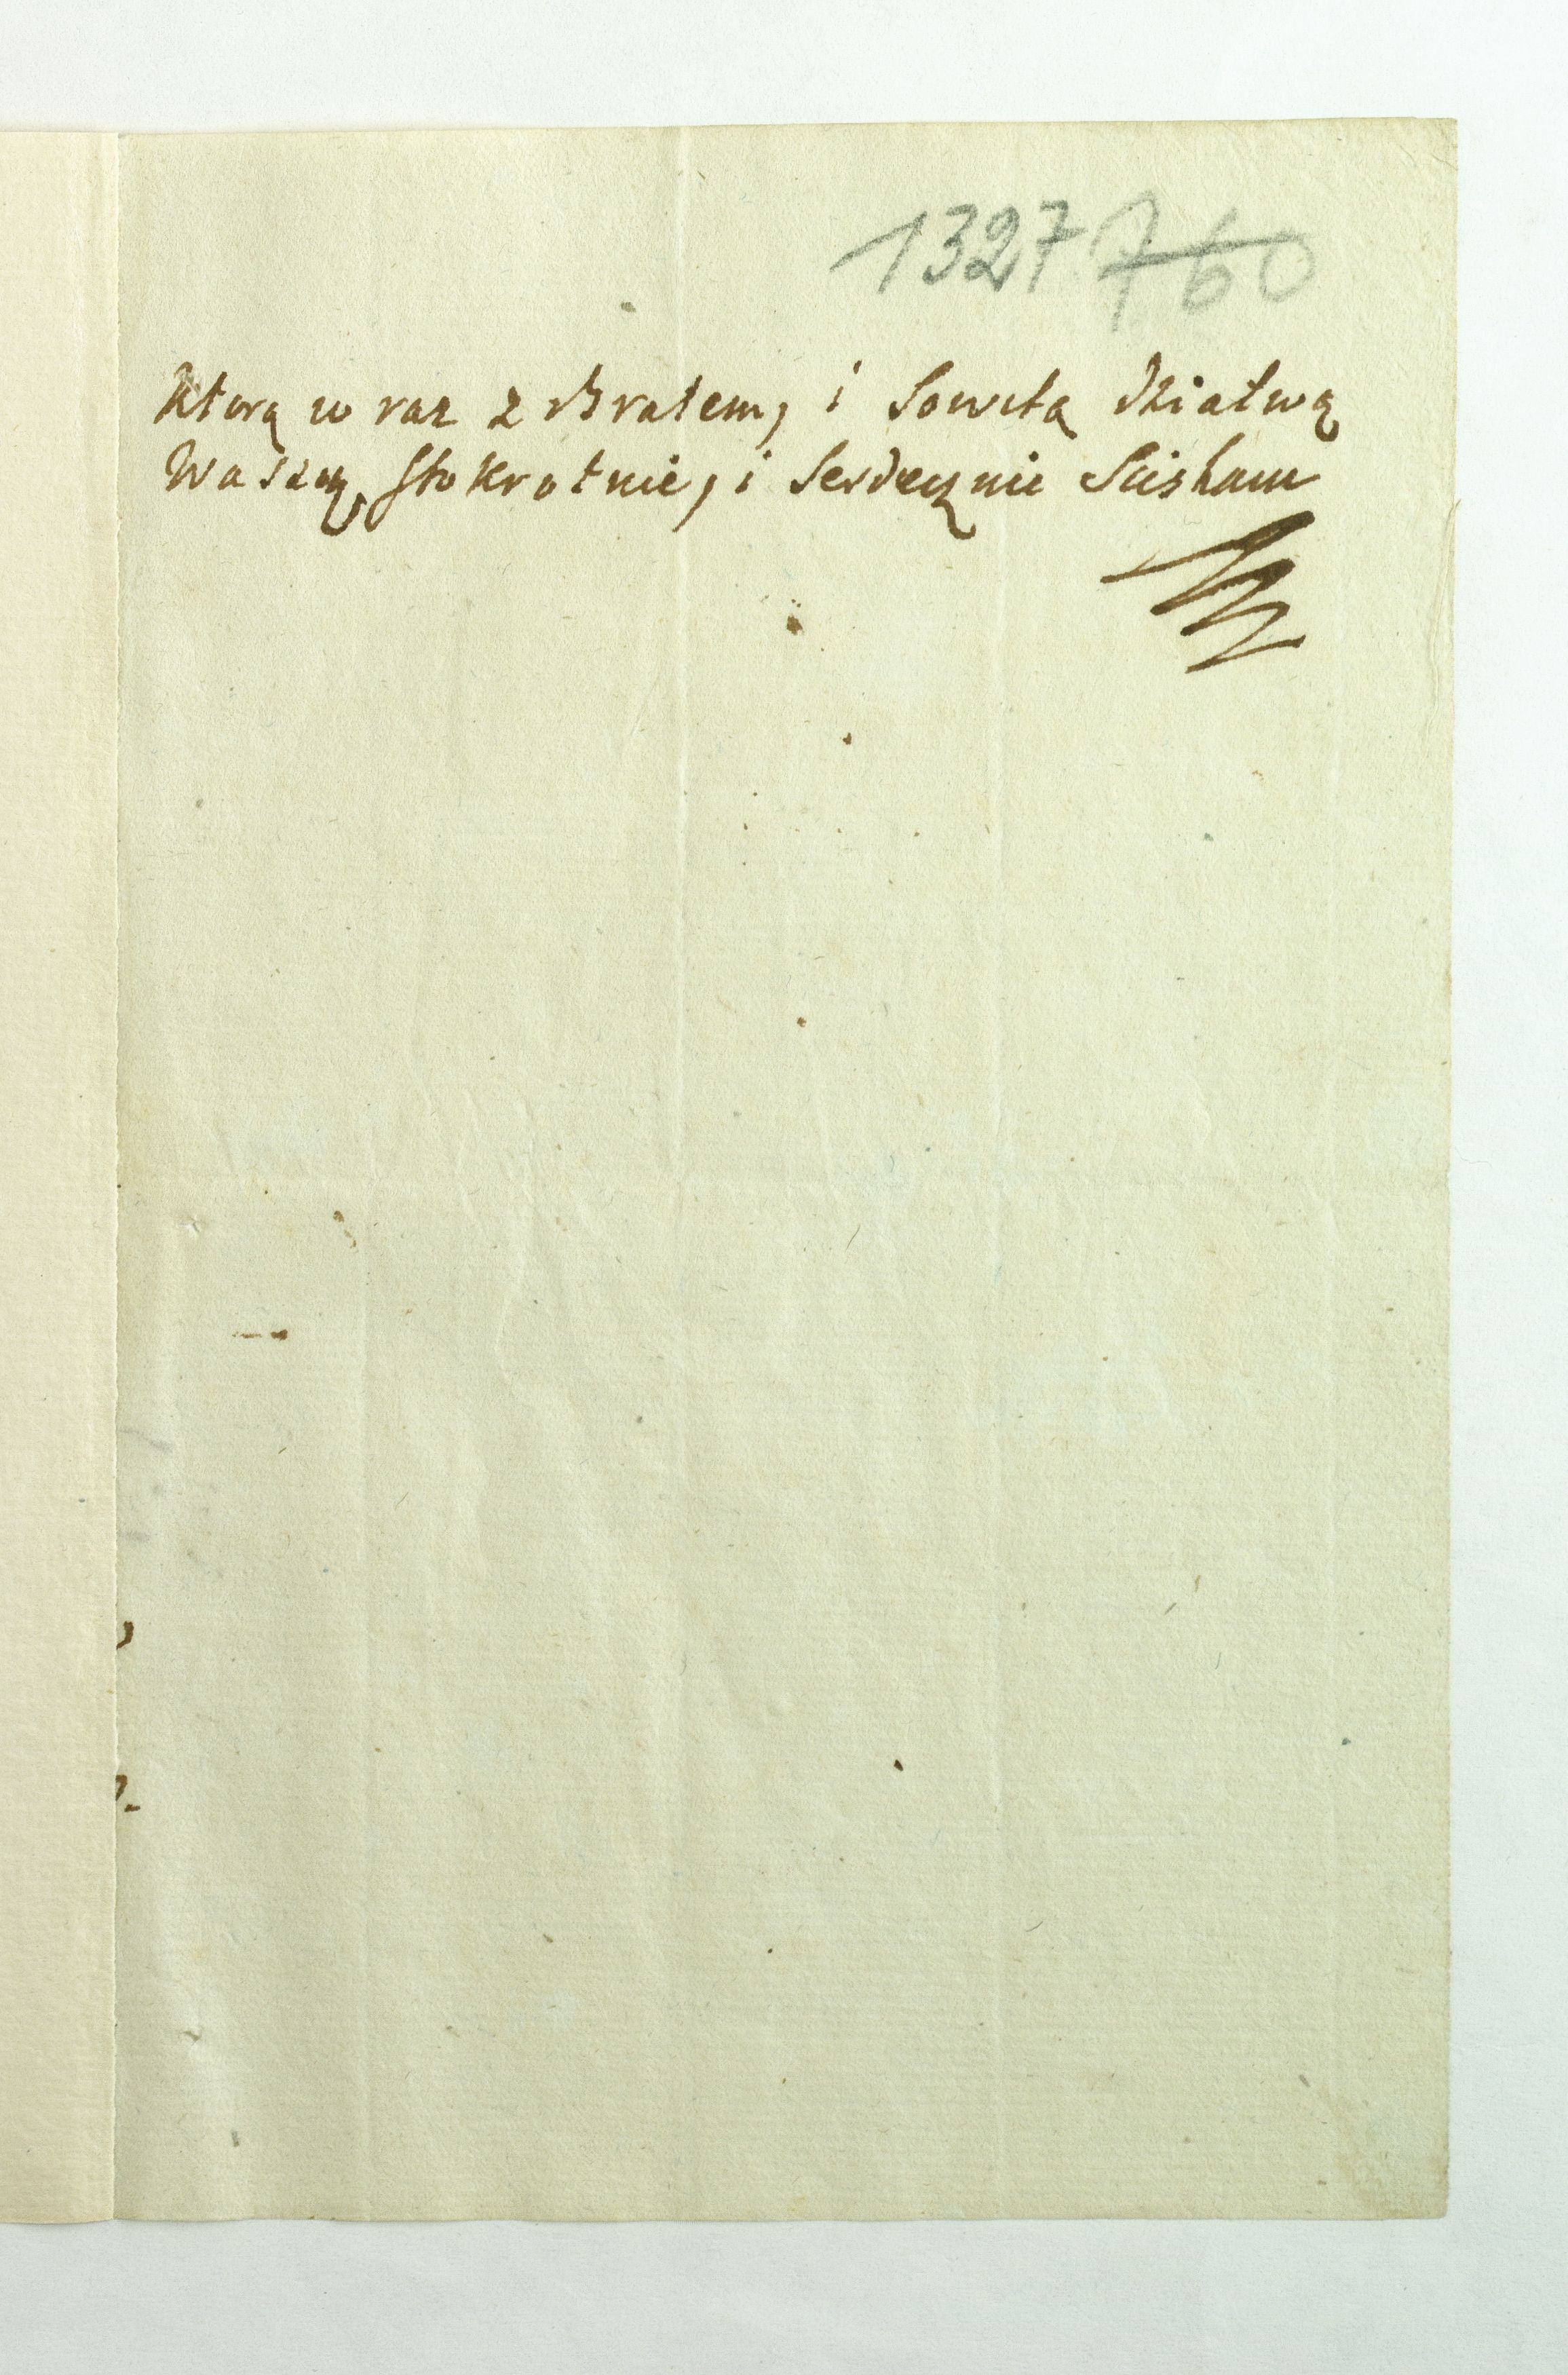 1327 760
Ktorą w raz z Bratem, i Sowitą dziatwą
Waszą, Stokrotnie, i Serdecznie Sciskam